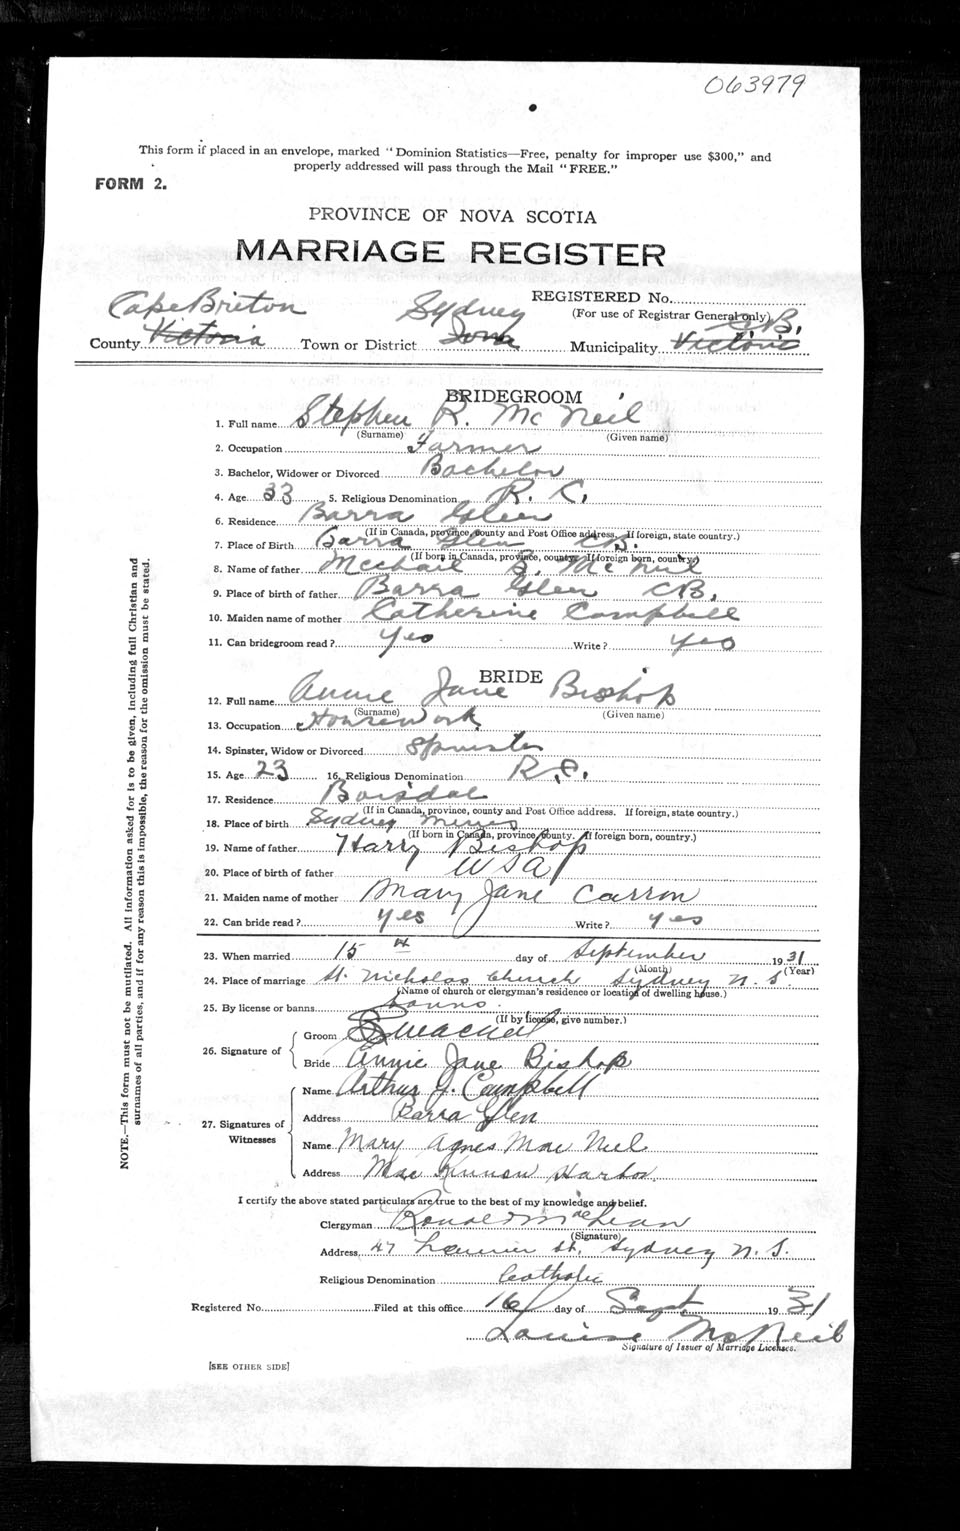 063979
This form if placed in an envelope, marked "Dominion Statistics—Free, penalty for improper use $300," and
properly addressed will pass through the Mail "FREE."
FORM 2.
PROVINCE OF NOVA SCOTIA
MARRIAGE REGISTER
REGISTERED No.
(For use of Registrar General only)
Cape Breton Sydney C.B.
County Victoria Town or District Iona Municipality Victoria
BRIDEGROOM
1. Full name Stephen R. McNeil
(Surname) (Given name)
2. Occupation Farmer
3. Bachelor, Widower or Divorced Bachelor
4. Age 33 5. Religious Denomination R. C.
6. Residence Barra Glen
(If in Canada, province, county and Post Office address. If foreign, state country.)
7. Place of Birth Barra Glen C B.
(If born in Canada, province, county. If foreign born, country.)
8. Name of father Michael B. McNeil
9. Place of birth of father Barra Glen C B.
10. Maiden name of mother Catherine Campbell
11. Can bridegroom read? Yes Write? Yes
BRIDE
12. Full name Annie Jane Bishop
(Surname) (Given name)
13. Occupation Housework
14. Spinster, Widow or Divorced Spinster
15. Age 23 16. Religious Denomination R.C.
17. Residence Boisdale
(If in Canada, province, county and Post Office address. If foreign, state country.)
18. Place of birth Sydney Mines
(If born in Canada, province, county. If foreign born, country.)
19. Name of father Harry Bishop
20. Place of birth of father U S A
21. Maiden name of mother Mary Jane Carron
22. Can bride read? yes Write? yes
23. When married 15th day of September 1931
(Month) (Year)
24. Place of marriage St. Nicholas Church Sydney N. S.
(Name of church or clergyman's residence or location of dwelling house.)
25. By license or banns Banns.
(If by license, give number.)
26. Signature of Groom
Bride Annie Jane Bishop
27. Signatures of Witnesses Name Arthur J. Campbell
Address Barra Glen
Name Mary Agnes MacNeil
Address MacKinnon Harbor.
I certify the above stated particulars are true to the best of my knowledge and belief.
Clergyman Ronald MacLean
(Signature)
Address 47 St. Sydney N. S.
Religious Denomination Catholic
Registered No. Filed at this office 16 day of Sept 1931
Louise McNeil
Signature of Issuer of Marriage Licenses.
[SEE OTHER SIDE]
NOTE.—This form must not be mutilated. All information asked for is to be given, including full Christian and
surnames of all parties, and if for any reason this is impossible, the reason for the omission must be stated.